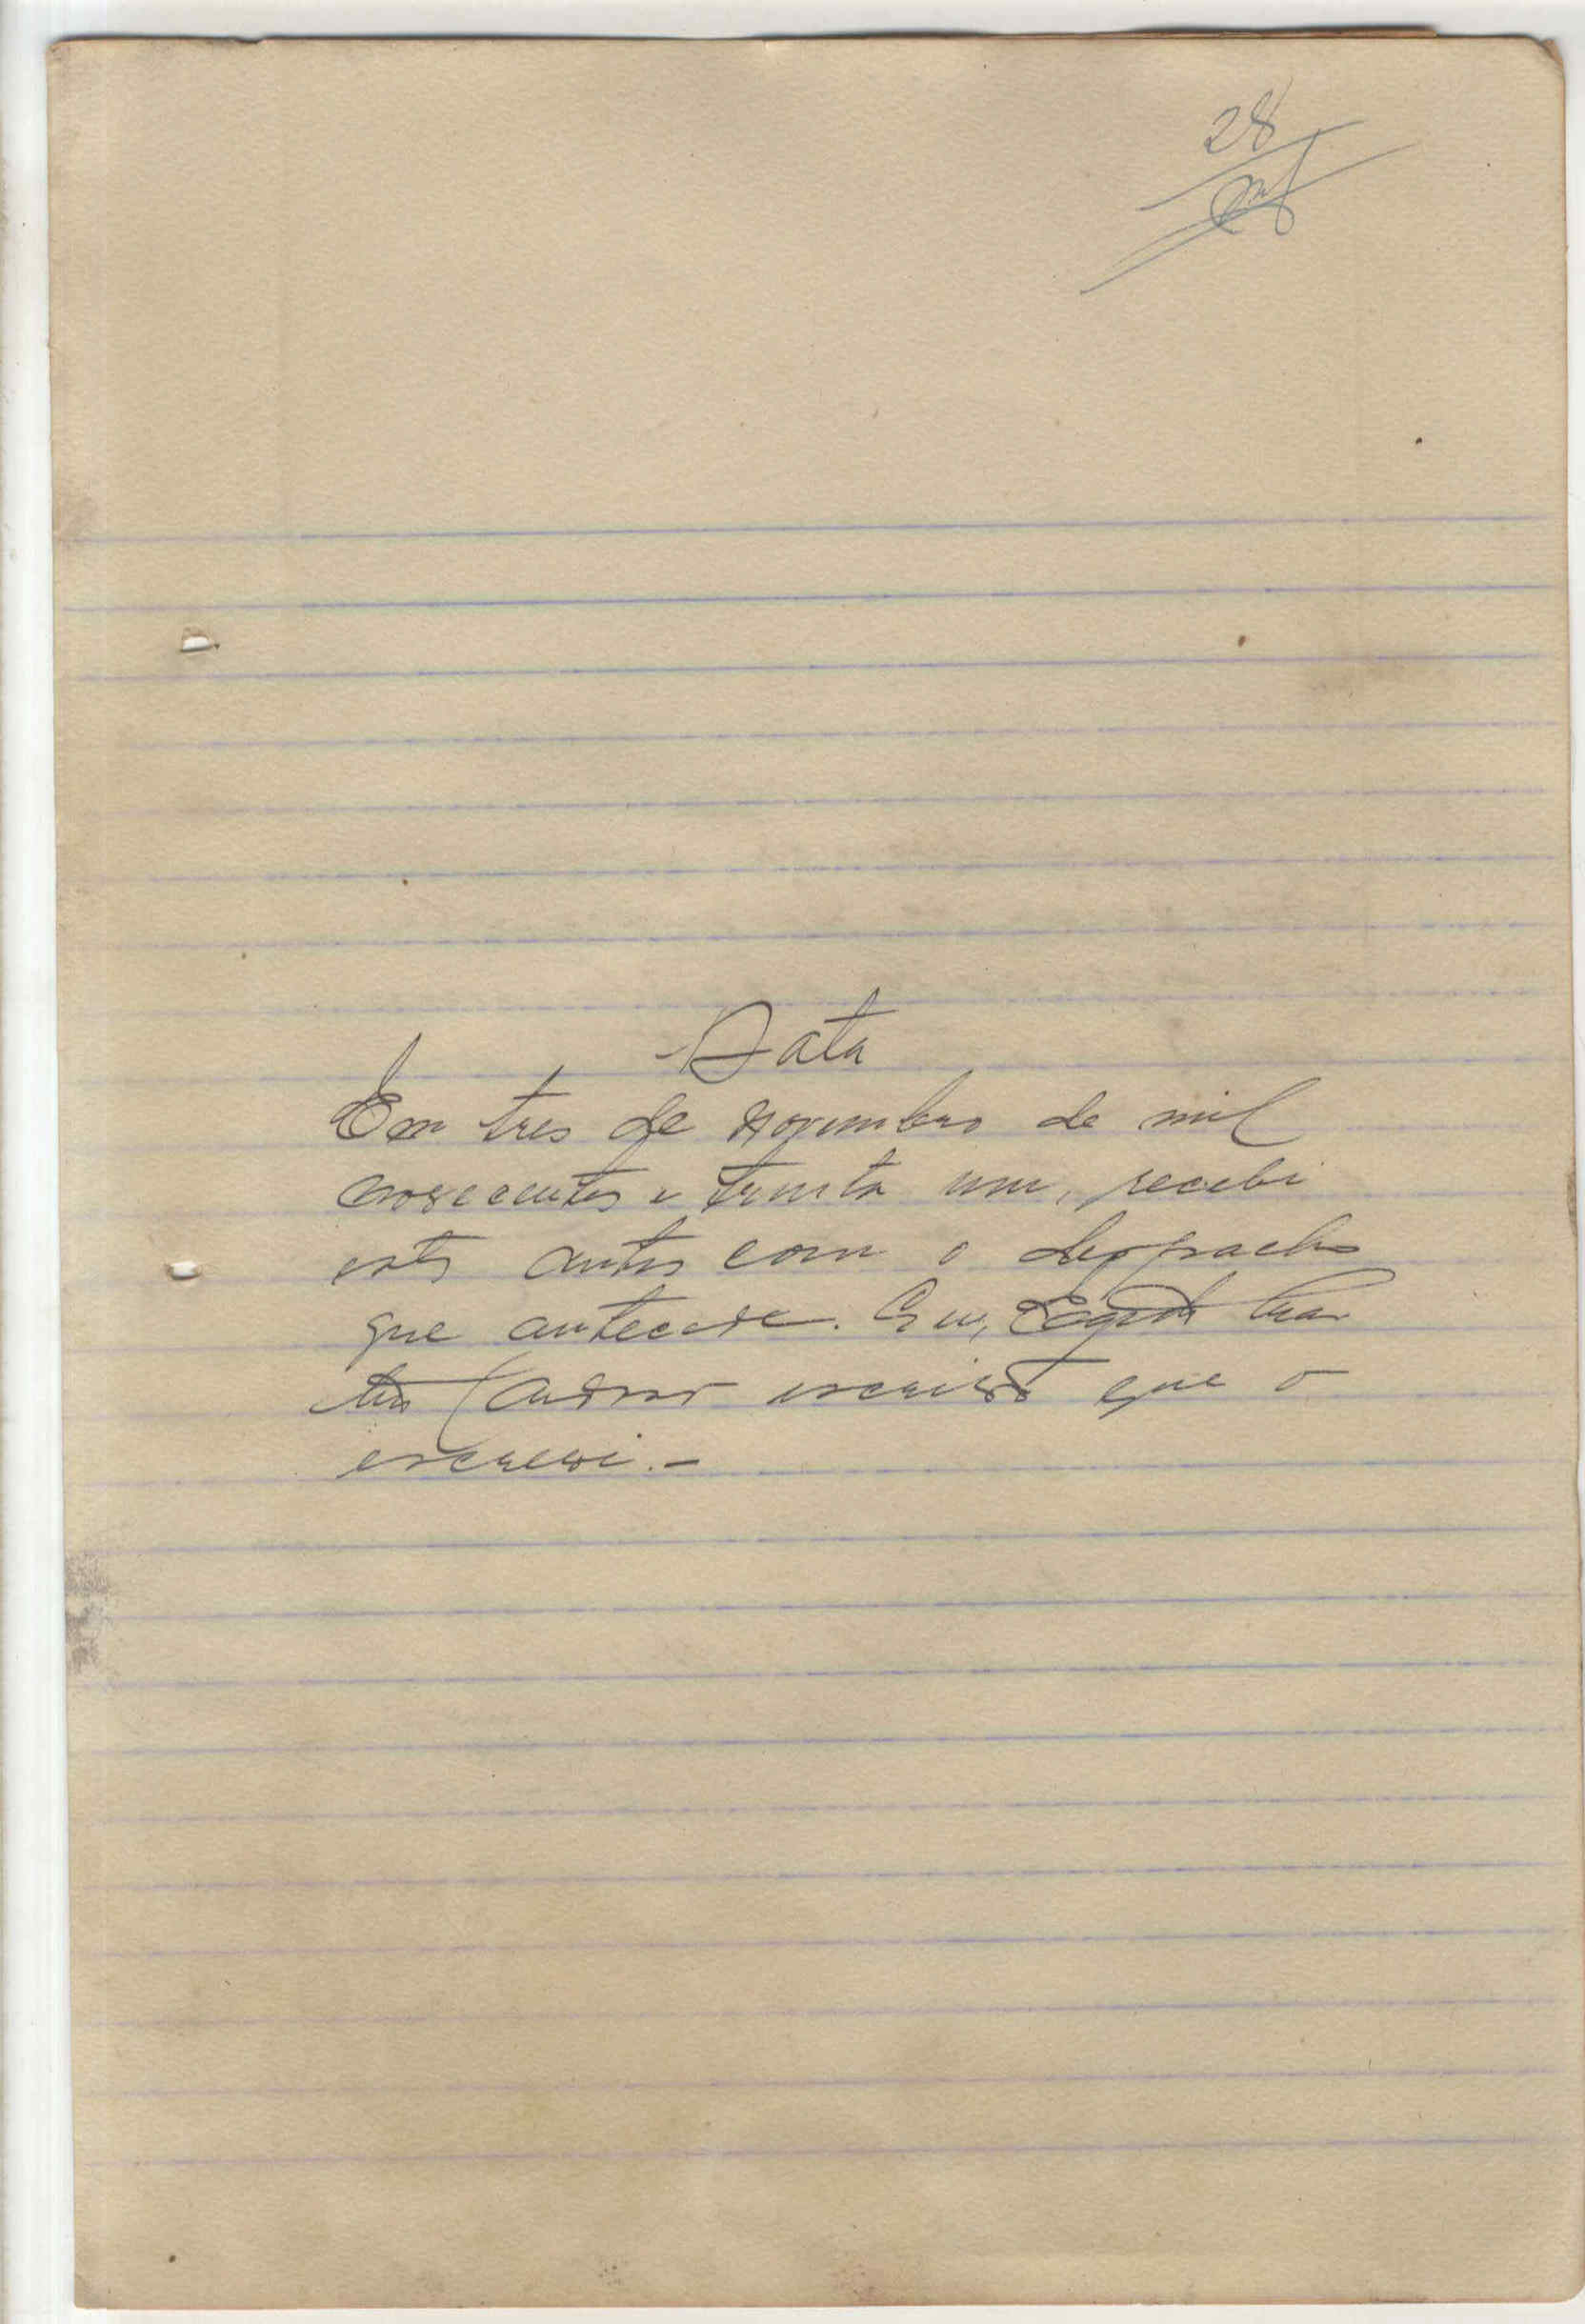 28
Data
Em tres de novembro de mil
novecentos e trinta um, recebi
estes autos com o despacho
que antecede. Eu,
escrivão que o
escrevi.-